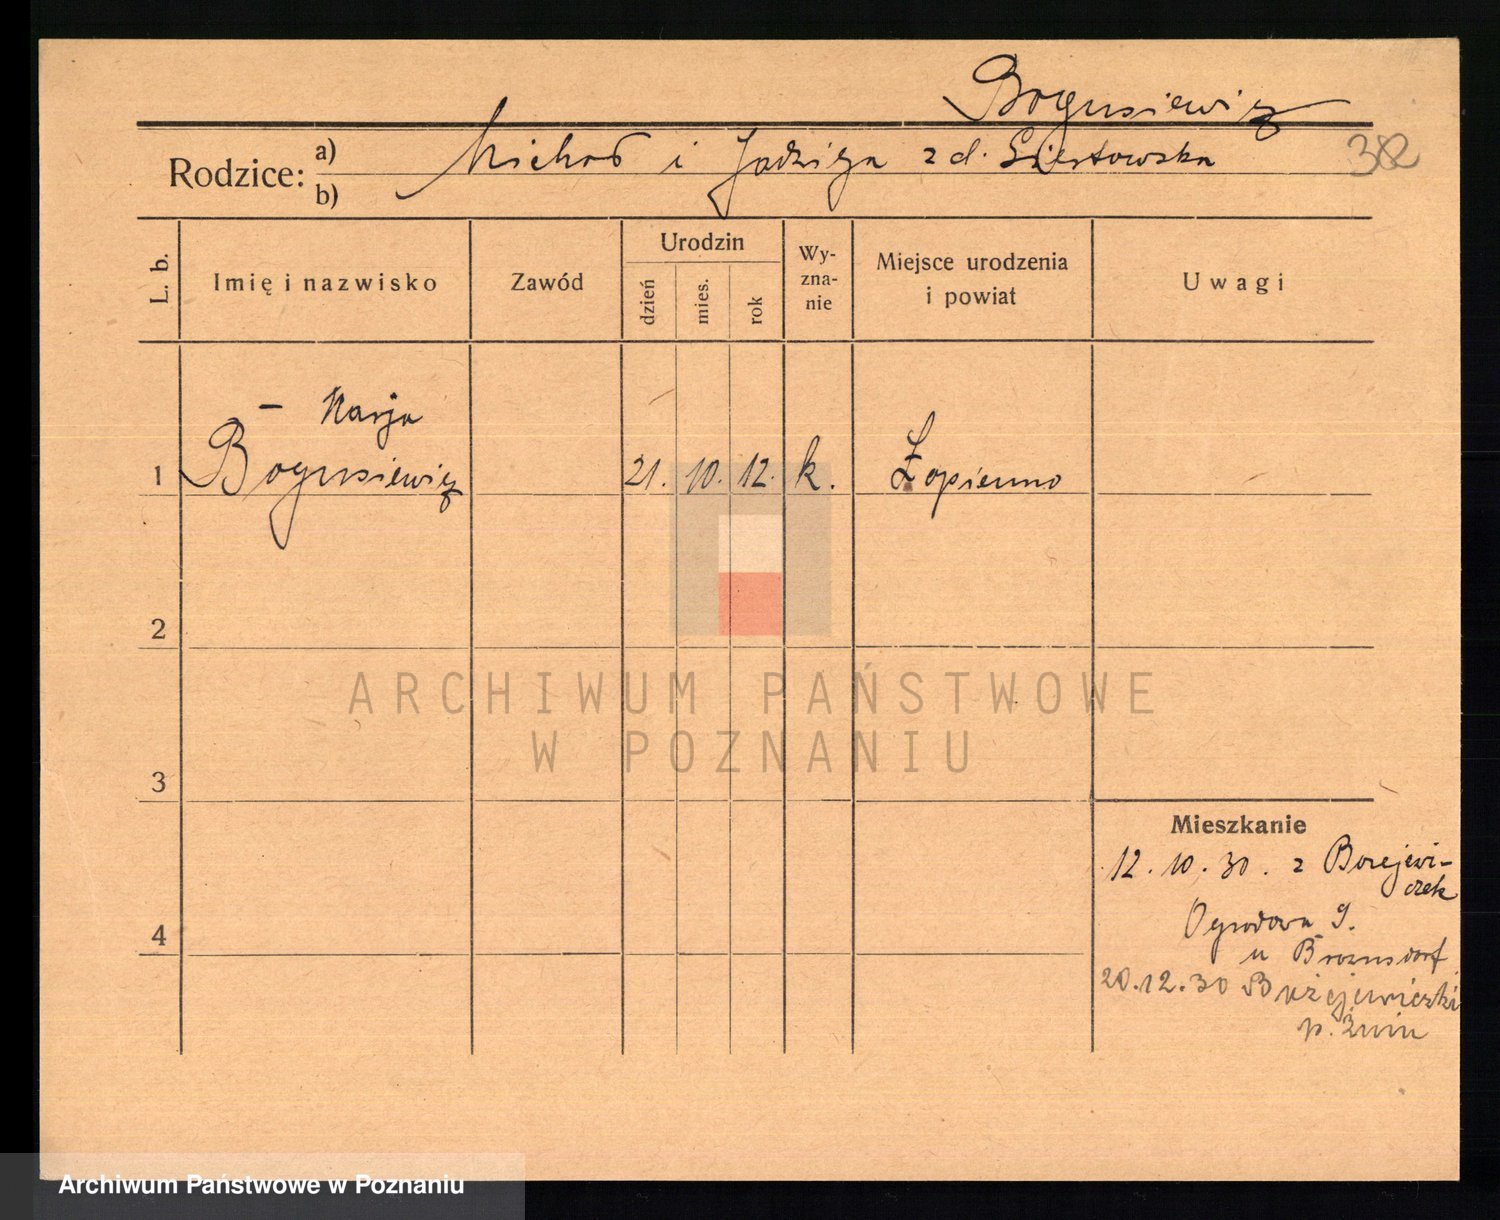 Bogusiewicz
Rodzice: a) Michał i Jadwiga z d. Siestowska
382
b)
L. b.
Imię i nazwisko
Zawód
Urodzin
dzień
mies.
rok
Wy-
zna-
nie
Miejsce urodzenia
i powiat
Uwagi
– Marja
1 Bogusiewicz 21. 10. 12. k. Łopienno
2
3
4
ARCHIWUM PAŃSTWOWE
W POZNANIU
Mieszkanie
12. 10. 30. z Bożejewi-
czek
Ogrodowa 9.
u
20.12.30 Bożejewiczki
p. Żnin
Archiwum Państwowe w Poznaniu